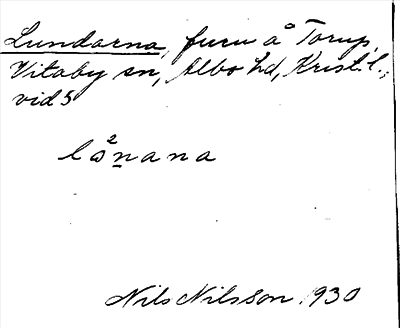 Lundarna, furu å Torup,
Vitaby sn, Albo hd, Krist. l.,
vid 5
Nils Nilsson 1930